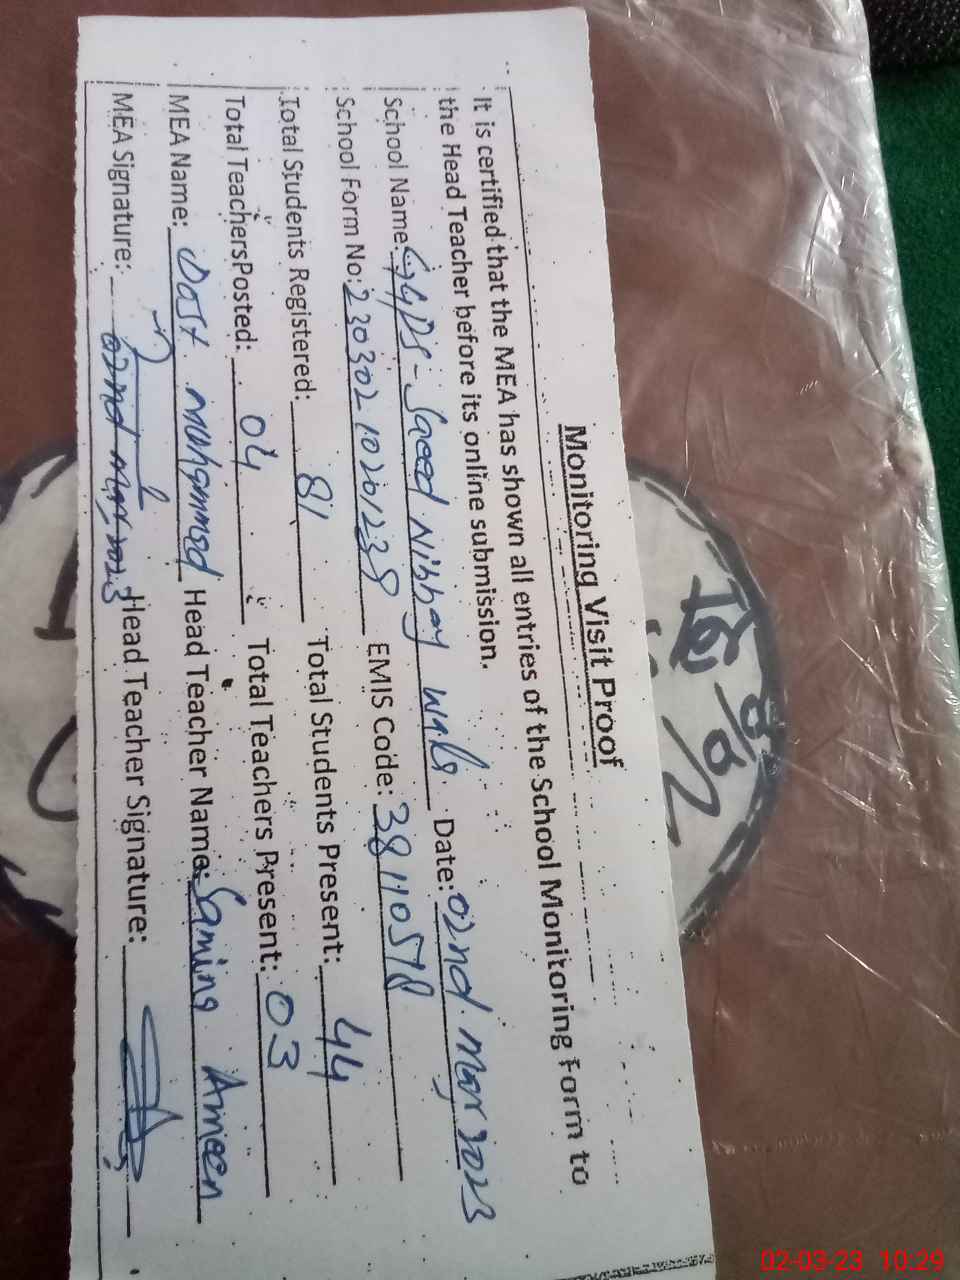 Monitoring Visit Proof
It is certified that the MEA has shown all entries of the School Monitoring Form to
the Head Teacher before its online submission.
School Name: GGPS-Saeed Nibhay wala Date: 02nd Mar, 2023
School Form No: 2303021026 EMIS Code:
Total Students Registered: 81 Total Students Present: 44
Total TeachersPosted: 04 Total Teachers Present: 03
MEA Name: Dost Muhammad Head Teacher Name: Samina Ameen
MEA Signature: 02nd Mar, 2023 Head Teacher Signature:
02-03-23 10:29